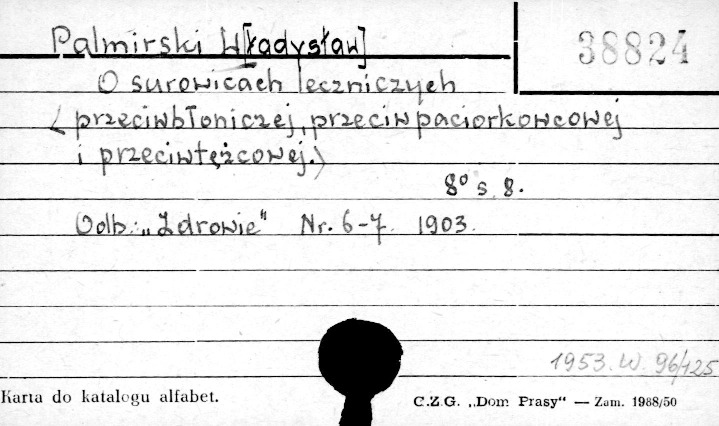 Palmirski W[ładysław]
38824
O surowicach leczniczych
(przeciwbłoniczej, przeciwpaciorkowcowej
i przeciwtężcowej.)
8° s. 8.
Odb. „Zdrowie" Nr. 6-7. 1903.
1953. W. 96/125
Karta do katalogu alfabet.
C.Z.G. „Dom Prasy“ — Zam. 1988/50